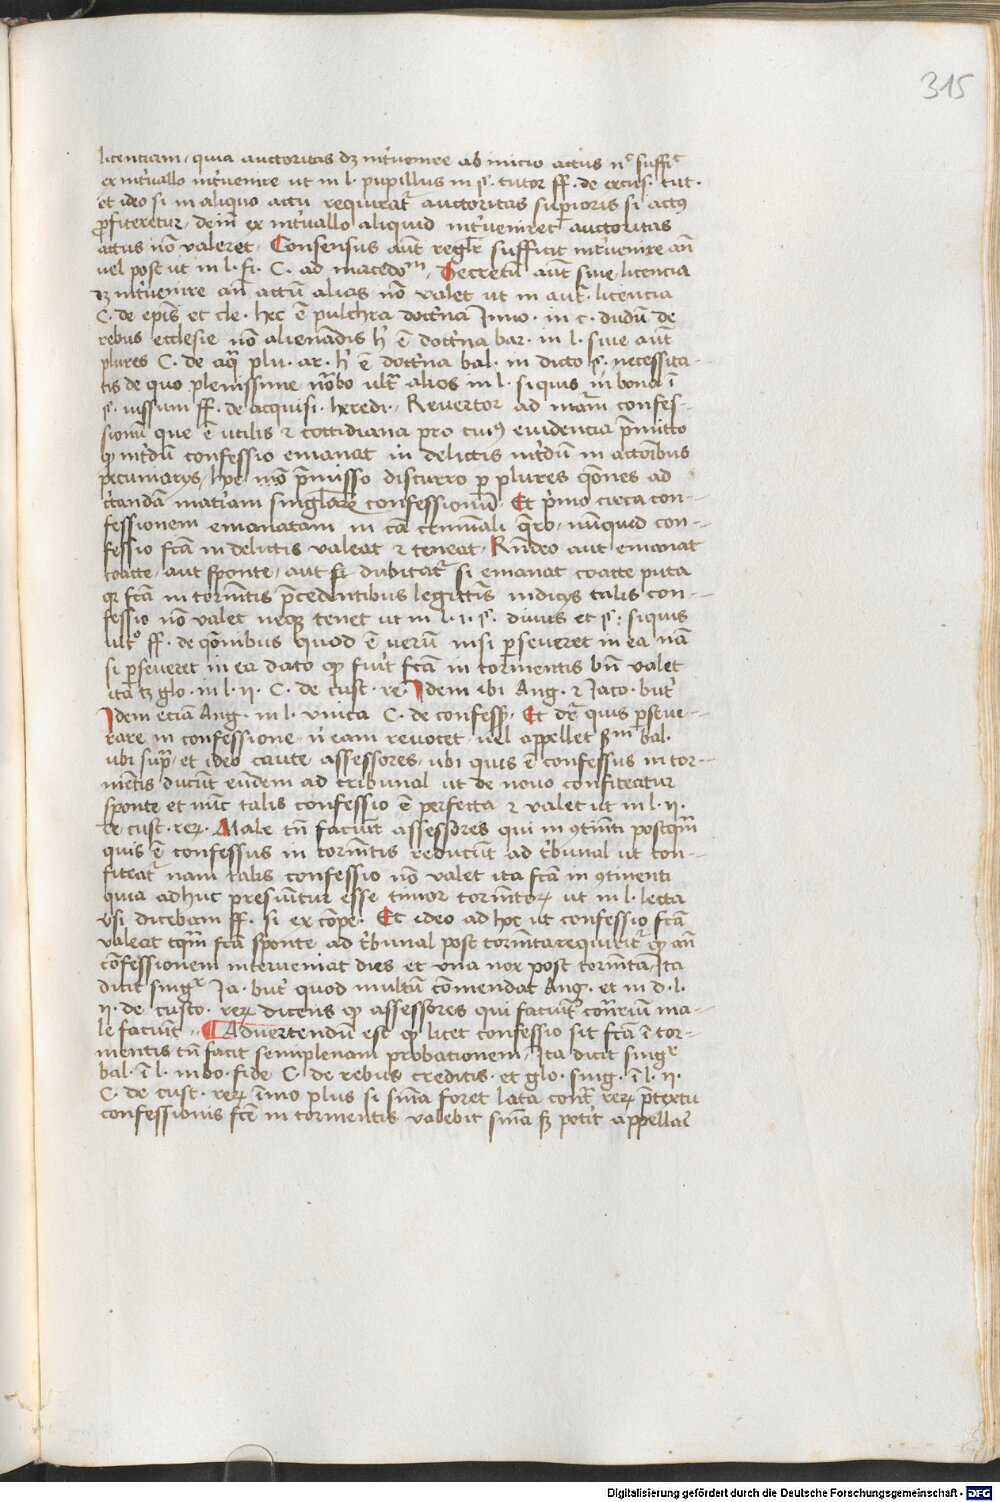 315
licentiam, quia auctoritas dz int'venire ab inicio actus nec suffit
ex int'vallo int'venire ut in l. pupillus in §. tutor ff. de excus. tut.
et ideo si in aliquo actu requirat' auctoritas sup̄ioris si act9
ꝓfiteretur, dein̄ ex int'vallo aliquid int'veniret auctoritas
actus nō valeret, Consensus aūt reglr̄ sufficit int'venire an̄
vel post ut in l. fi. C. ad macedom̄, Decretū aūt sive licencia
dz int'venire an̄ actū alias nō valet ut in aut. licencia
C. de epis̄ et cle. hec ē pulchra doct'na Inno. in c. dudū de
rebus ecclesie nō alienādis h' ē doct'na bar. in l. sive aūt
plures C. de aq̄ plu. ar. h' ē doct'na bal. in dicto §. necessita-
tis de quo plenissime nr̄abo ult' alios in l. siquis mi bona ī
§. iussum ff. de acquisi. heredi., Revertor ad mat̄am confes-
sionū que ē utilis ⁊ cottidiana pro cui9 evidencia p̄mitto
ꝙ int'dū confessio emanat in delictis int'dū in actōnibus
pecuniarys, hoc mō p̄misso discurro ꝑ plures q̄ones ad
c̄tandā mat̄iam singlarē confessionū. Et p̄imo circa con-
fessionem emanatam in cā criminali q̄ro, nūnquid con-
fessio fcā in delictis valeat ⁊ teneat, Rn̄deo aut emanat
coacte, aut sponte, aut sit dubitat' si emanat coacte puta
qr fcā in torm̄tis p̄cedentibus legittīs indicys talis con-
fessio nō valet neqꝫ tenet ut in l. 1. §. divus et §. siquis
ult° ff. de q̄onibus quod ē verū nisi ꝑseveret in ea nā
si ꝑseveret in ea dato ꝙ fu'it fcā in tormentis bn̄ valet
ita tz glo. in l. ii. C. de cust. re. Idem ibi Ang. ⁊ Jaco. but'
Idem eciā Ang. in l. unica C. de confess. Et dr̄ quis ꝑseve-
rare in confessione, n̄ eam revocet, vel appellet sm̄ bal.
ubi sup̄, et ideo caute assessores, ubi quis ē confessus in tor-
mētis ducūt eūdem ad tribunal ut de novo confiteatur
sponte et nūc talis confessio ē perfecta ⁊ valet ut in l. ii.
de cust. reꝝ. Male tn̄ faciūt assessores qui in 9tinēti postq̄m
quis ē confessus in torm̄tis reducūt ad t'bunal ut con-
fiteat' nam talis confessio nō valet ita fcā in 9tinenti
quia adhuc presumitur esse timor torm̄toꝝ ut in l. lecta
v̄si dicebam ff. si ex cōpe. Et ideo ad hoc ut confessio fcā
valeat tq̄m fcā sponte ad t'bunal post torm̄ta requirit' ꝙ an̄
cōfessionem interveniat dies et una nox post torm̄ta, Ita
dicit singr Ja. but' quod multū cōmendat Ang. et in d. l.
ii. de custo. reꝝ dicens ꝙ assessores qui faciūt cont̄rium ma-
le faciūt, Advertendū est ꝙ licet confessio sit fcā ī tor-
mentis tn̄ facit semiplenam probationem, Ita dicit singr
bal. ī l. in bo. fide C. de rebus creditis. et glo. sing. ī l. ii.
C. de cust. reꝝ īmo plus si sn̄ia foret lata cont' reꝝ p̄textu
confessionis fcē in tormentis valebit sn̄ia sꝫ pot'it appellaī
Digitalisierung gefördert durch die Deutsche Forschungsgemeinschaft - DFG